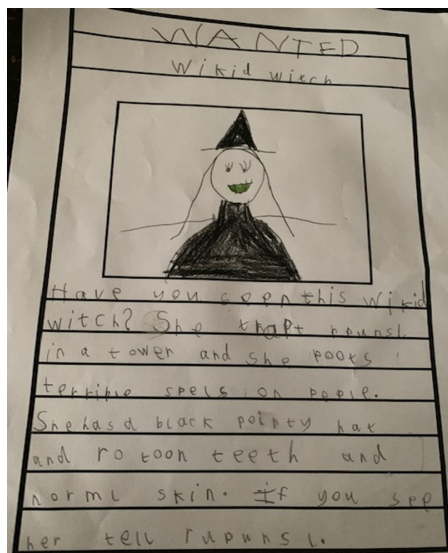 WANTED
Wikid witch
Have you seen this wikid
witch? She trapt rpunsl
in a tower and she poots
terrible spels on pople.
She has a black pointy hat
and rotoon teeth and
norml skin. If you see
her tell rupunsl.